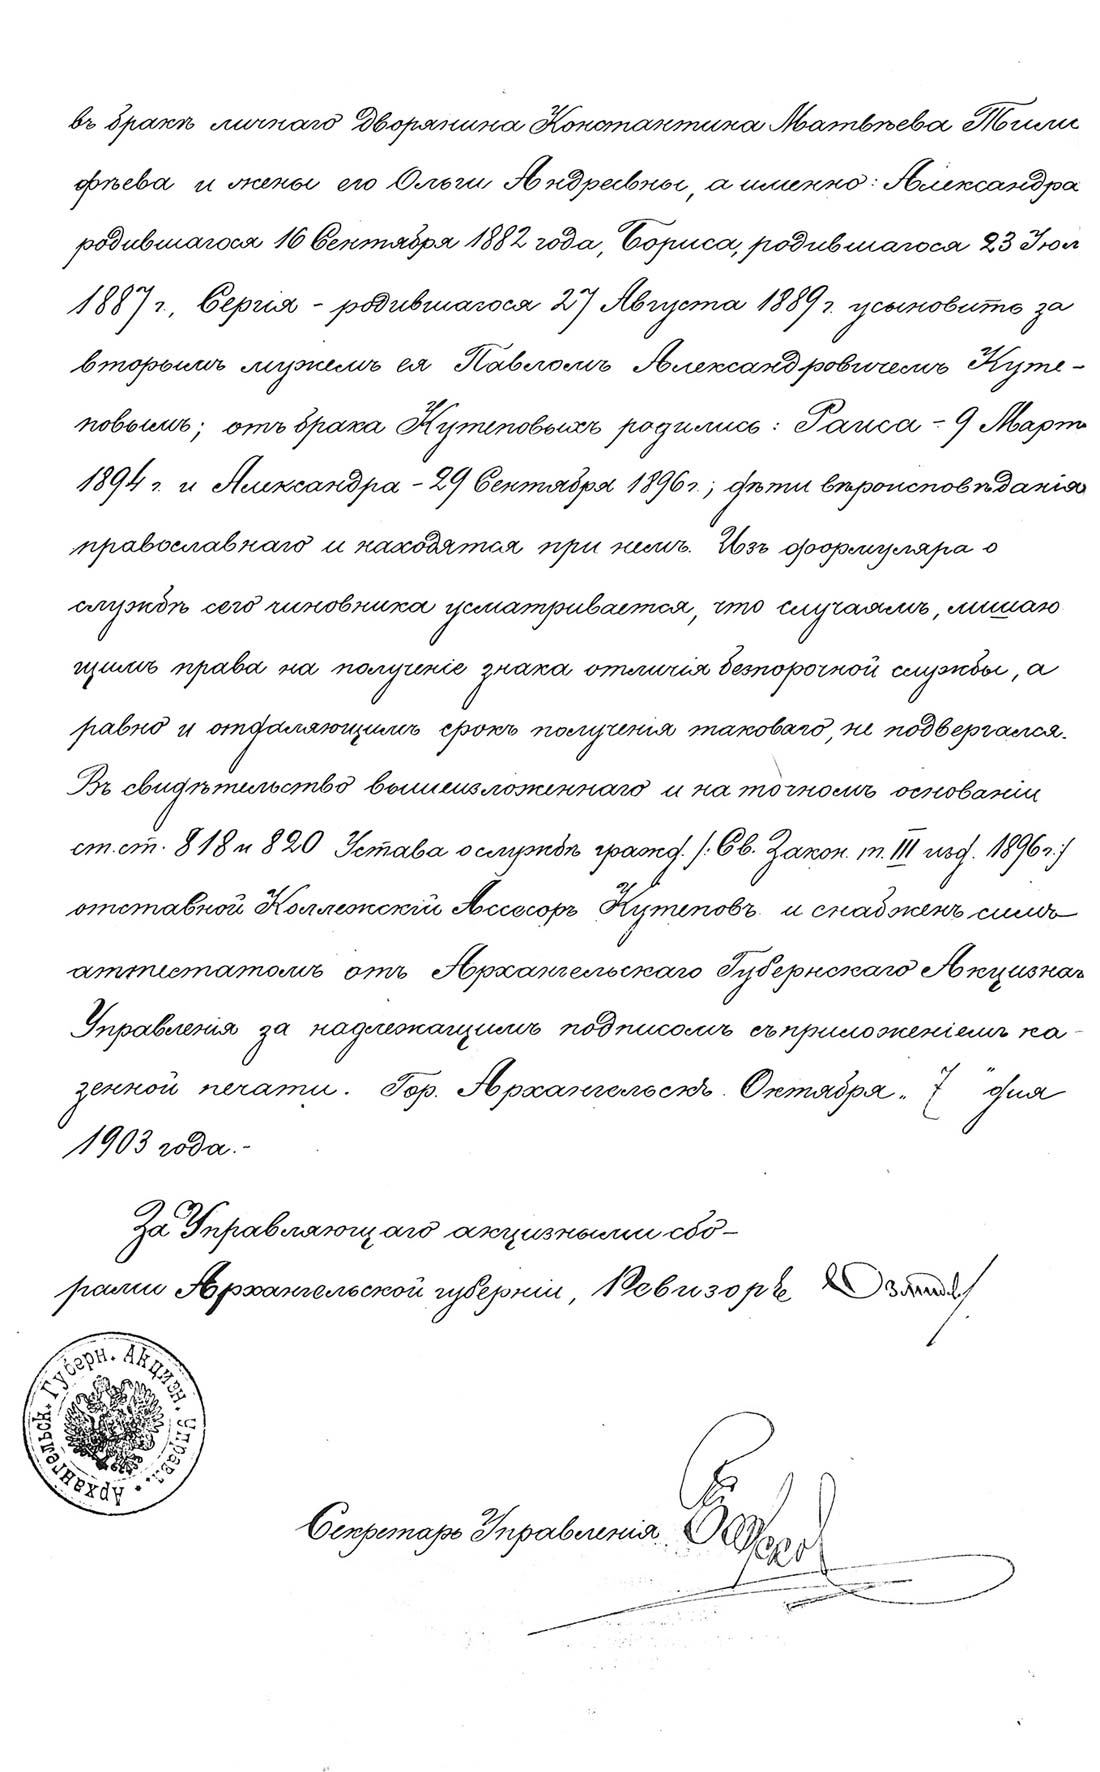 въ бракѣ личнаго Дворянина Константина Матвѣева Тими
фѣева и жены его Ольги Андреевны, а именно: Александра
родившагося 16 Сентября 1882 года, Бориса, родившагося 23 Іюл
1887 г., Сергія - родившагося 27 Августа 1889 г. усыновить за
вторымъ мужемъ ея Павломъ Александровичемъ Куте-
повымъ; отъ брака Кутеповыхъ родились: Раиса - 9 Март
1894 г. и Александра - 29 Сентября 1896 г.; дѣти вѣроисповѣданія
православнаго и находятся при немъ. Изъ формуляра о
службѣ сего чиновника усматривается, что случаямъ, лишаю
щимъ права на полученіе знака отличія безпорочной службы, а
равно и отдаляющимъ срокъ полученія таковаго, не подвергался.
Въ свидѣтельство вышеизложеннаго и на точномъ основаніи
ст.ст. 818 и 820 Устава о службѣ гражд. /: Св. Закон. т. III изд. 1896 г. :/
отставной Коллежскій Ассесоръ Кутеповъ и снабженъ симъ
аттестатомъ отъ Архангельскаго Губернскаго Акцизнаг
Управленія за надлежащимъ подписомъ съ приложеніемъ ка-
зенной печати. Гор. Архангельскъ. Октября „ 7 " дня
1903 года.-
За Управляющаго акцизными сбо-
рами Архангельской губерніи, Ревизоръ
Архангельск. Губерн. Акцизн. Управл.
Секретарь Управленія